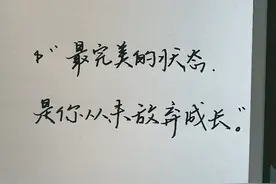 “最完美的状态.
是你从未放弃成长。”